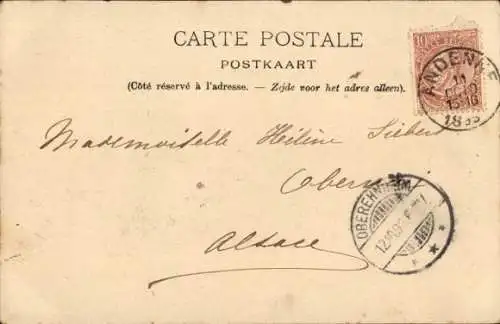 CARTE POSTALE
POSTKAART
(Côté réservé à l'adresse. — Zijde voor het adres alleen).
10
ANDENNE
11
1899
Mademoiselle Hélène Sieber
Obernai
OBEREHNHEIM
12.10.99
Alsace